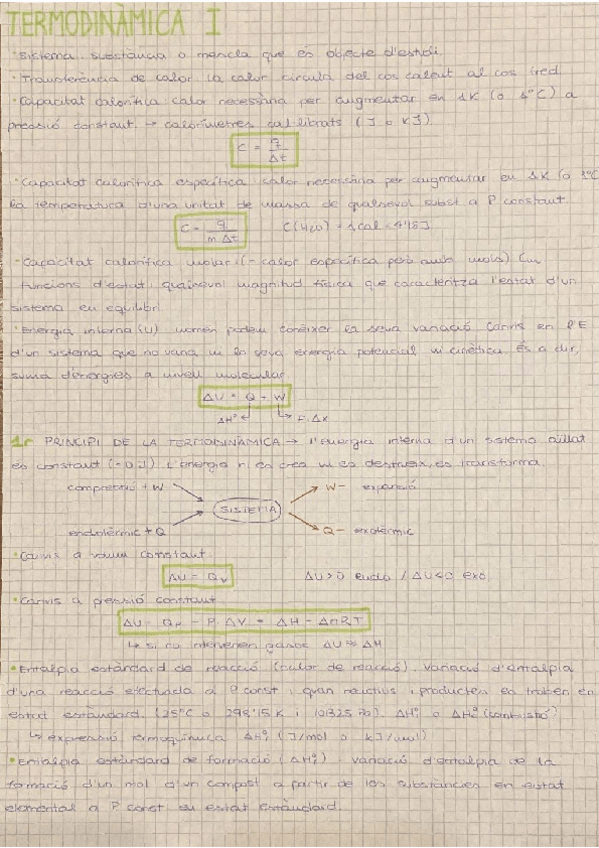 TERMODINÀMICA I
• Sistema: substància o mescla que és objecte d'estudi.
• Transferència de calor: la calor circula del cos calent al cos fred
• Capacitat calorífica: calor necessària per augmentar en 1K (o 1°C) a
pressió constant. → calorímetres cal·librats (J o kJ).
C = q / Δt
• Capacitat calorífica específica: calor necessària per augmentar en 1K (o 1°C
la temperatura d'una unitat de massa de qualsevol subst a P constant.
C = q / m Δt C(H2O) = 1cal = 4'18J
• Capacitat calorífica molar: (= calor específica però amb mols)
funcions d'estat: qualsevol magnitud física que caracteritza l'estat d'un
sistema en equilibri
• Energia interna (U) només podem conèixer la seva variació. Canvis en
d'un sistema que no varia ni la seva energia potencial ni cinètica. És a dir,
suma d'energies a nivell molecular
ΔU = Q + W
ΔH° ↲ ↳ F·Δx
1r PRINCIPI DE LA TERMODINÀMICA → l'energia interna d'un sistema aïllat
és constant (= 0J) L'energia ni es crea ni es destrueix, es transforma.
compressió + W W− expansió
SISTEMA
endotèrmic + Q Q− exotèrmic
• Canvis a volum constant
ΔU = Qv ΔU>0 endo / ΔU<0 exo
• Canvis a pressió constant
ΔU = Qp − P·ΔV = ΔH − ΔnRT
↳ si no intervenen gasos ΔU ≈ ΔH
• Entalpia estàndard de reacció (calor de reacció): variació d'entalpia
d'una reacció efectuada a P const i quan reactius i productes es troben en
estat estàndard. (25°C o 298'15 K i 101325 Pa). ΔH° o ΔH°c (combustió)
↳ expressió termoquímica ΔH° (J/mol o kJ/mol)
• Entalpia estàndard de formació (ΔH°f): variació d'entalpia de la
formació d'un mol d'un compost a partir de les substàncies en estat
elemental a P const en estat estàndard.